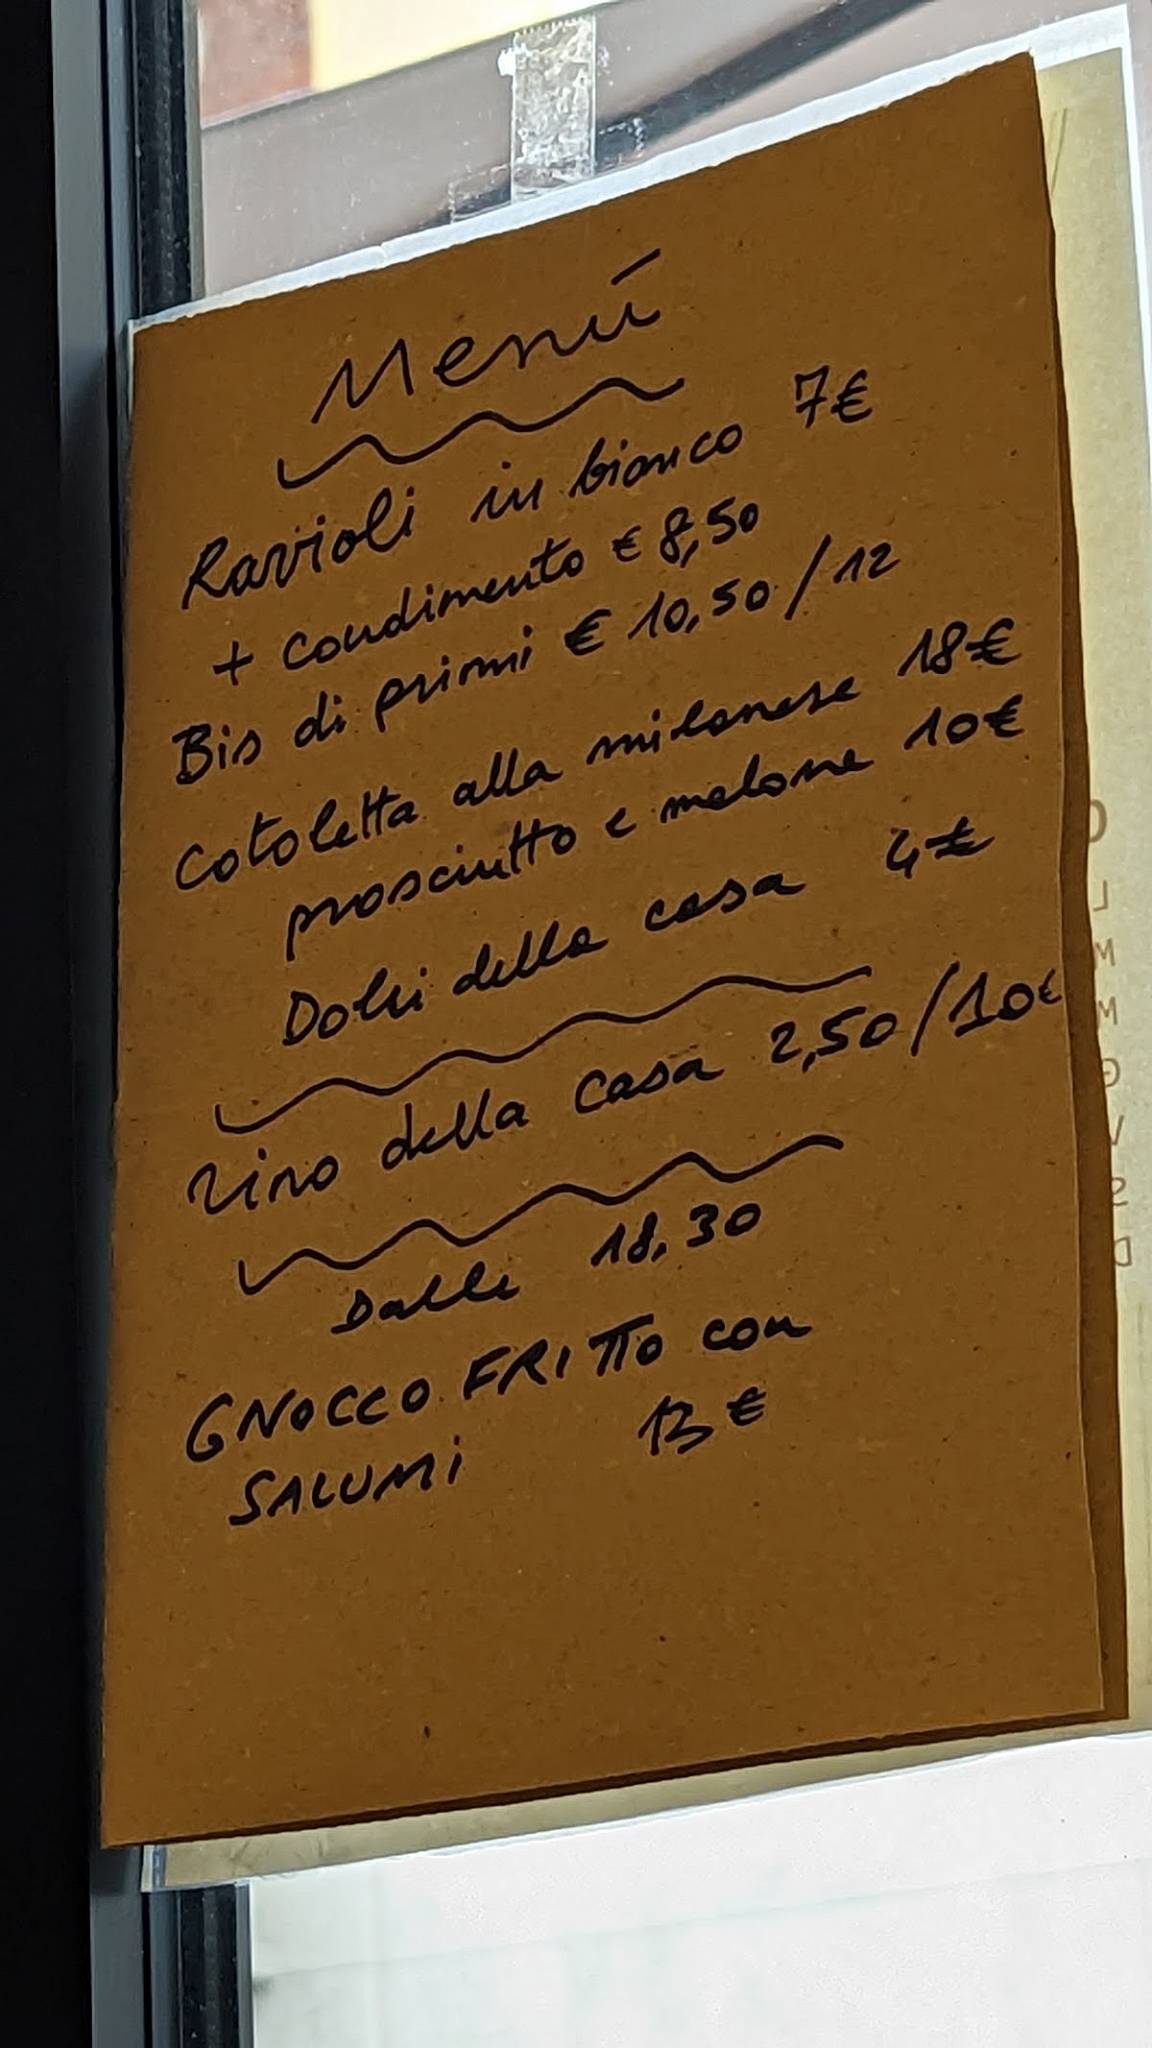 Menú
Ravioli in bianco 7€
+ condimento € 8,50
Bis di primi € 10,50 / 12
Cotoletta alla milanese 18€
prosciutto e melone 10€
Dolci della casa 4€
Vino della casa 2,50 / 10€
Dalle 18,30
GNOCCO FRITTO con
SALUMI 13 €